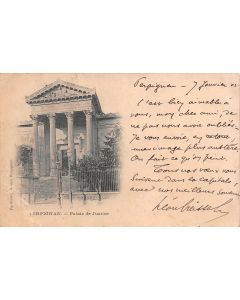 Perpignan, 7 Janvier 01
C'est bien aimable à
vous, mon cher ami, de
ne pas nous avoir oubliés.
Je vous envoie en retour
une image plus austère
On fait ce qu'on peut.
Tous nos vœux vous
suivent dans la capitale,
avec nos meilleurs souvenirs
PERPIGNAN. — Palais de Justice